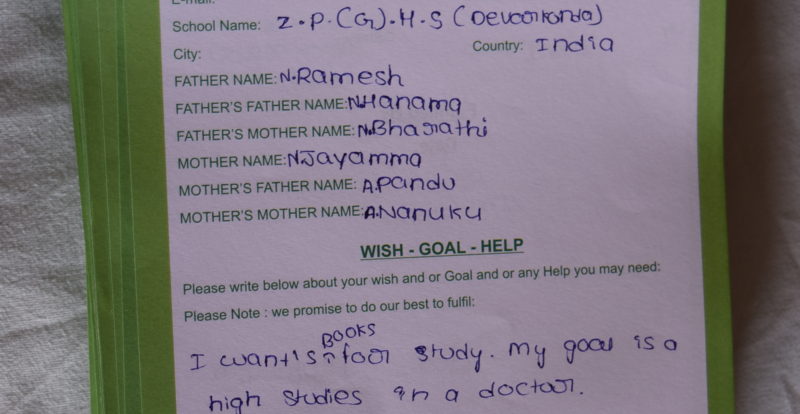 E-mail:
School Name: Z.P.(G).H.S (Devarkonda)
City: Country: India
FATHER NAME: N.Ramesh
FATHER'S FATHER NAME: N.Hanama
FATHER'S MOTHER NAME: N.Bharathi
MOTHER NAME: N.Jayamma
MOTHER'S FATHER NAME: A.Pandu
MOTHER'S MOTHER NAME: A.Nanuku
WISH - GOAL - HELP
Please write below about your wish and or Goal and or any Help you may need:
Please Note : we promise to do our best to fulfil:
BOOKS
I want's for study. My goal is a
high studies in a doctor.